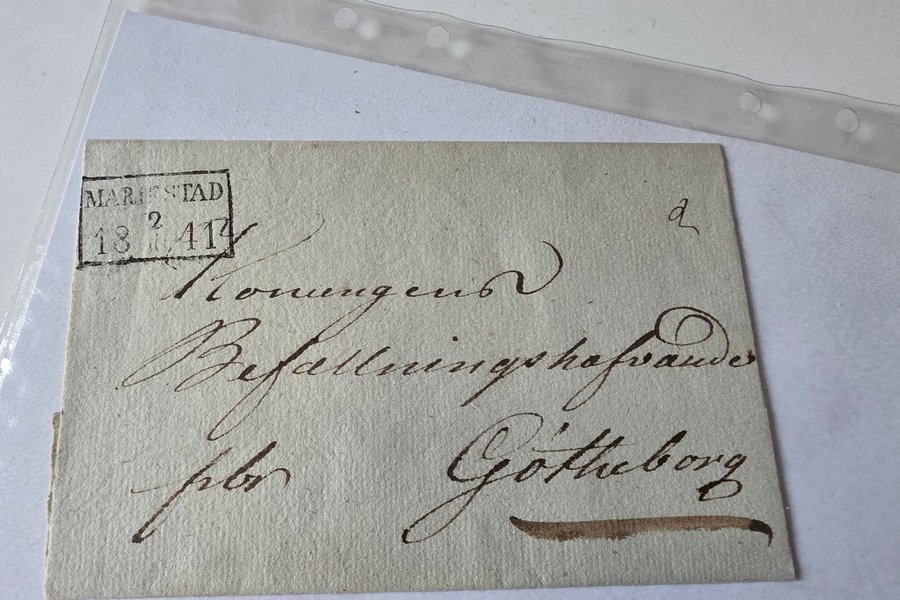 MARIESTAD
2
18 11 41
Konungens
Befallningshafvande
pbr Götheborg